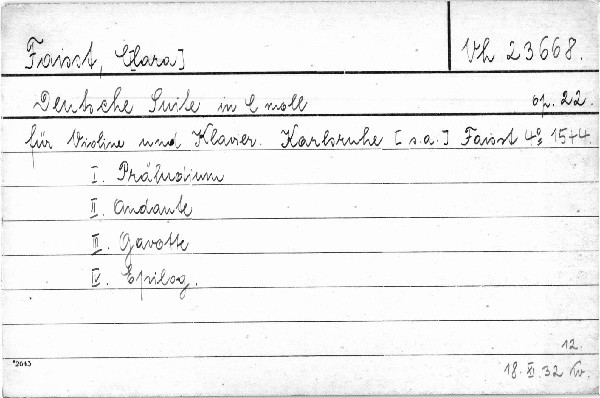 Faisst, C[lara]
Vh 23668.
Deutsche Suite in C moll op. 22.
für Violine und Klavier. Karlsruhe [s.a.] Faisst 4° 15+4.
I. Präludium
II. Andante
III. Gavotte
IV. Epilog.
12.
*2643
18. XI. 32